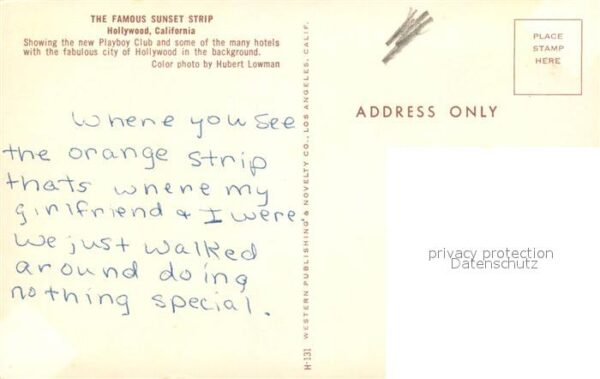 THE FAMOUS SUNSET STRIP
Hollywood, California
Showing the new Playboy Club and some of the many hotels
with the fabulous city of Hollywood in the background.
Color photo by Hubert Lowman
Where you see
the orange strip
thats where my
girlfriend & I were
We just walked
around doing
nothing special.
H-131 WESTERN PUBLISHING & NOVELTY CO., LOS ANGELES, CALIF.
PLACE
STAMP
HERE
ADDRESS ONLY
privacy protection
Datenschutz